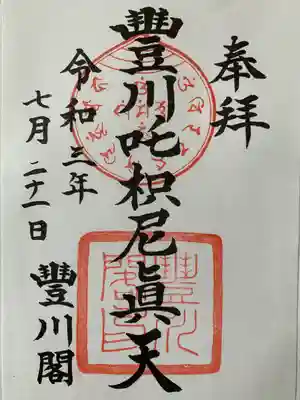 奉拝
豐川吒枳尼眞天
令和三年
七月二十一日
豐川閣
豐川閣印